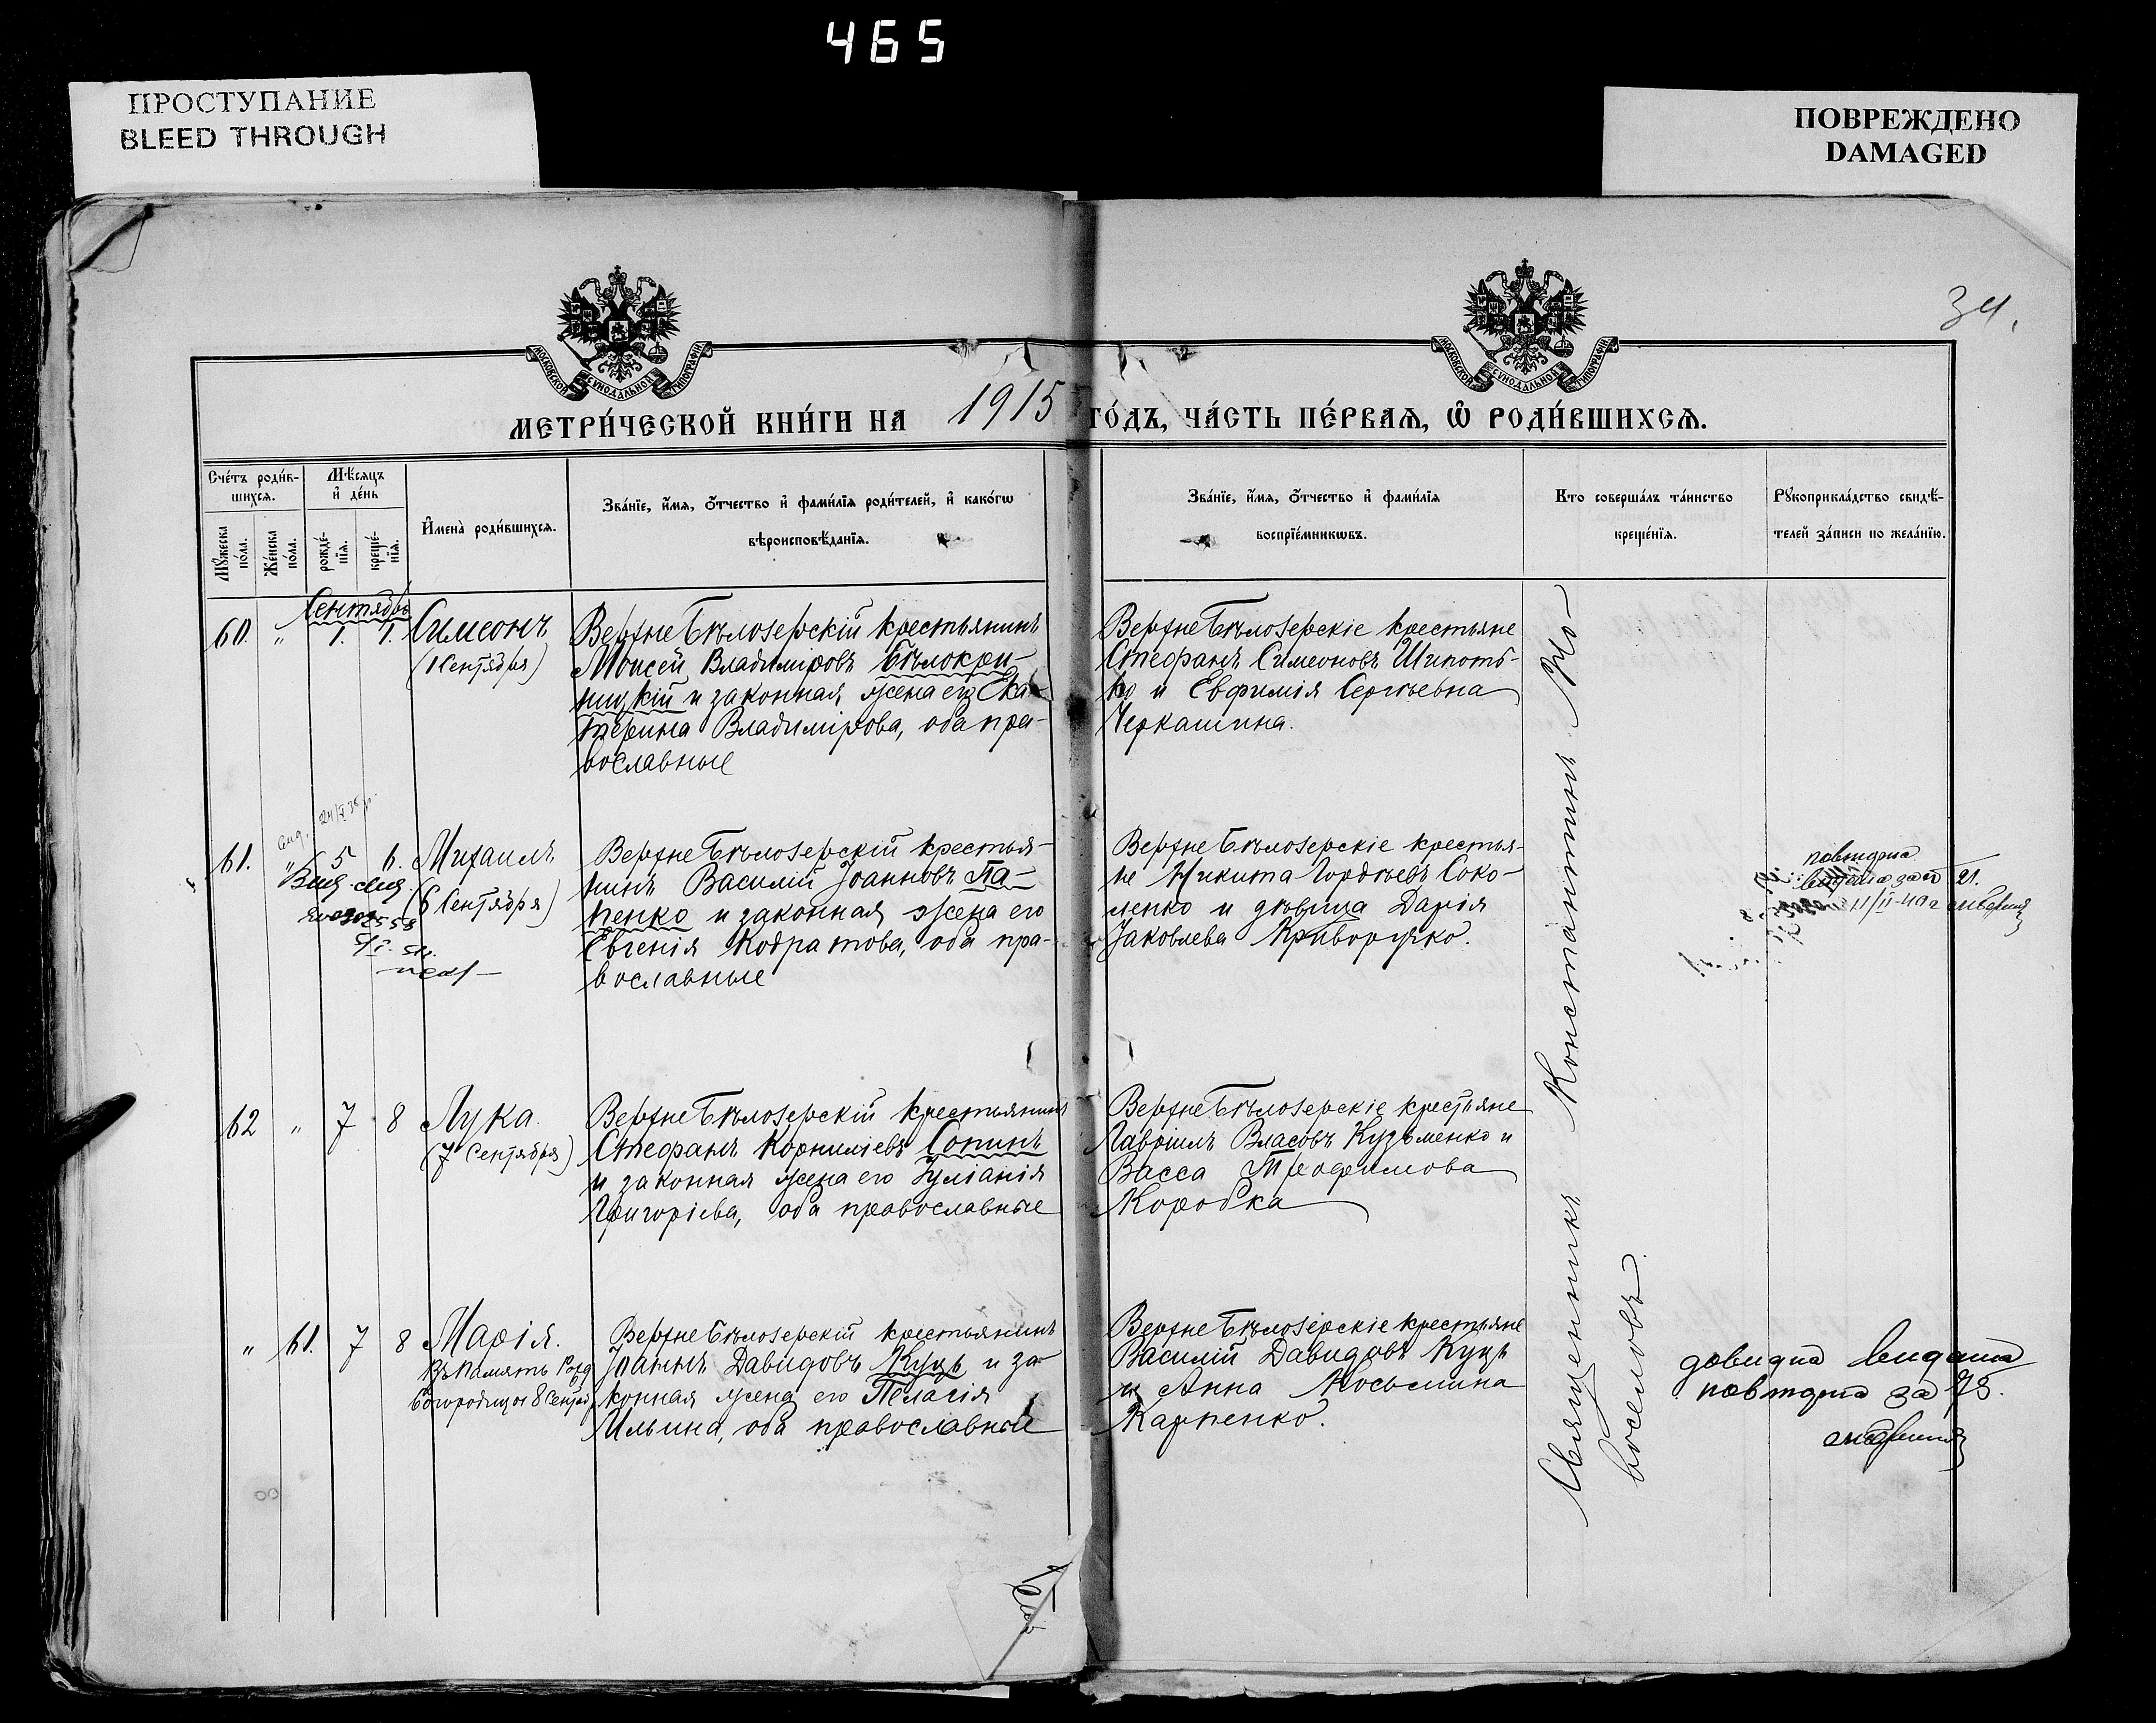 465
ПРОСТУПАНИЕ
BLEED THROUGH
ПОВРЕЖДЕНО
DAMAGED
34.
МОСКОВСКОЙ СѴНОДАЛЬНОЙ ТИПОГРАФІИ
МОСКОВСКОЙ СѴНОДАЛЬНОЙ ТИПОГРАФІИ
МЕТРИ́ЧЕСКОЙ КНИ́ГИ НА 1915 ГО́ДЪ, ЧА́СТЬ ПЕ́РВАѦ, Ѡ҆ РОДИ́ВШИХСѦ.
Сче́тъ роди́в-
шихсѧ.
Мꙋ́жеска по́ла.
Же́нска по́ла.
Мѣ́сѧцъ
и҆ де́нь
рожде́-
нїѧ.
креще́-
нїѧ.
И҆мена̀ роди́вшихсѧ.
Зва́нїе, и҆́мѧ, ѻ҆́тчество и҆ фами́лїѧ роди́телей, и҆ како́гѡ
вѣроисповѣ́данїѧ.
Зва́нїе, и҆́мѧ, ѻ҆́тчество и҆ фами́лїѧ
воспрїе́мникѡвъ.
Кто соверша́лъ та́инство
креще́нїѧ.
Рꙋкоприкла́дство свидѣ́-
телей за́писи по жела́нїю.
Сентябрь
60. " 1. 1. Симеонъ
(1 Сентября)
Верхне Бѣлозерскій крестьянинъ
Моисей Владиміровъ Бѣлокри-
ницкій и законная жена его Ека-
терина Владимірова, оба пра-
вославные
Верхне Бѣлозерскіе крестьяне
Стефанъ Симеоновъ Шипоть-
ко и Евфимія Сергѣевна
Черкашина.
61. " 5 6. Михаилъ
(6 Сентября)
Верхне Бѣлозерскій крестья-
нинъ Василій Іоанновъ Па-
пенко и законная жена его
Евгенія Кодратова, оба пра-
вославные
Верхне Бѣлозерскіе крестья-
не Никита Гордѣевъ Соко-
ленко и дѣвица Дарія
Іаковлева Криворучко.
повторна
21.
62 " 7 8 Лука.
(7 Сентября)
Верхне Бѣлозерскій крестьянинъ
Стефанъ Корниліевъ Сопинъ
и законная жена его Іуліанія
Григоріева, оба православные
Верхне Бѣлозерскіе крестьяне
Гавріилъ Власовъ Кузьменко и
Васса Трофимова
Коробка
" 61. 7 8 Марія.
Въ Память Рожд
Богородицы 8 Сентяб.
Верхне Бѣлозерскій крестьянинъ
Іоаннъ Давидовъ Куцъ и за-
конная жена его Пелагія
Ильина, оба православные
Верхне Бѣлозерскіе крестьяне
Василій Давидовъ Куцъ
и Анна Косьмина
Карпенко.
Священникъ Константинъ Но-
воселовъ.
довидка видана
повторна за 73.